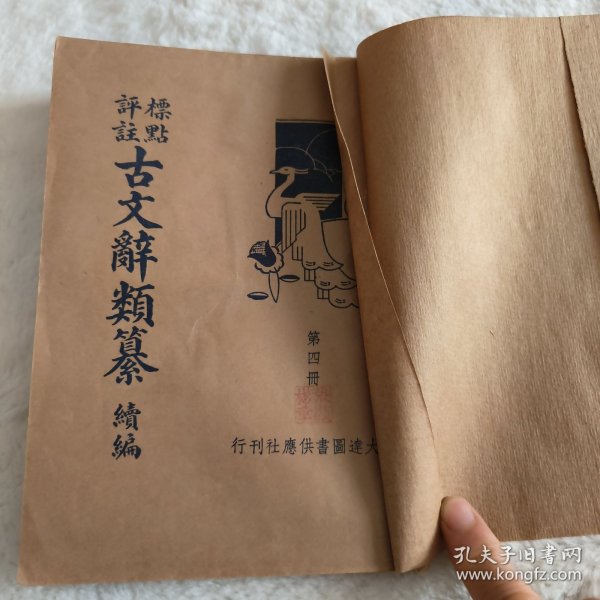 標點
評註
古文辭類纂
續編
第四冊
大達圖書供應社刊行
孔夫子旧书网
www.kongfz.com